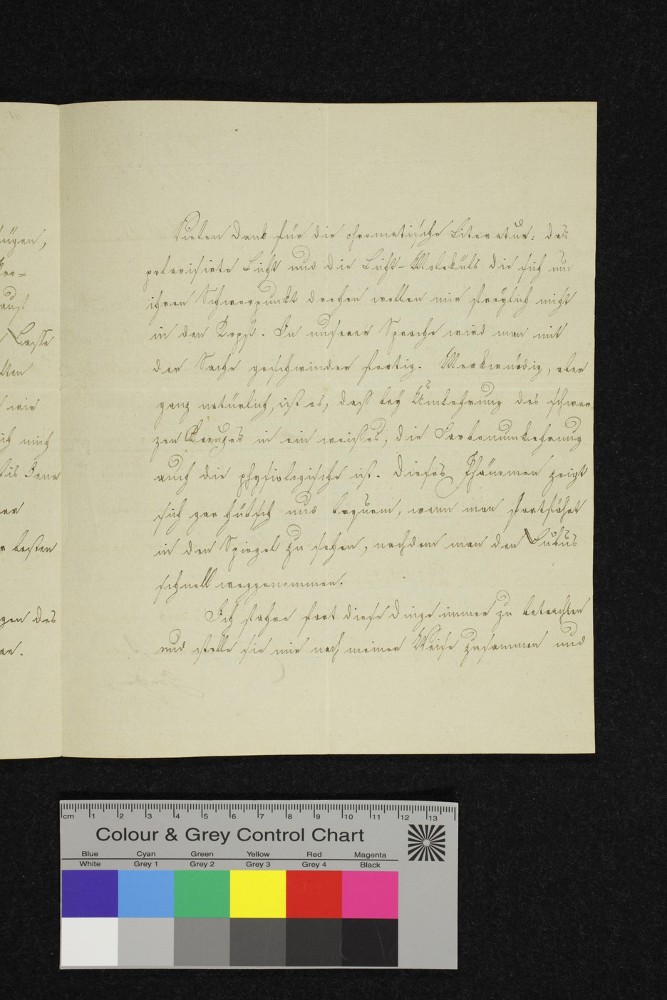 ügen,
aus
Beste
ich mich
r besten
gen des
en.
Vielen Dank für die chromatische Literatur; das
polarisirte Licht und die Licht-Moleküls die sich um
ihren Schwerpunkt drehen wollen mir freylich nicht
in den Kopf. In unserer Sprache wird man mit
der Sache geschwinder fertig. Merkwürdig, aber
ganz natürlich, ist es, daß bey Umkehrung des schwar
zen in ein weisses, die Farbenumkehrung
auch die physiologische ist. Dieses Phänomen zeigt
sich gar hübsch und bequem, wenn man fortfährt
in den Spiegel zu sehen, nachdem man den Kubus
schnell weggenommen.
Ich fahre fort diese Dinge immer zu betrachten
und stelle sie mir nach meiner Weise zusammen und
cm 1 2 3 4 5 6 7 8 9 10 11 12 13
Colour & Grey Control Chart
Blue Cyan Green Yellow Red Magenta
White Grey 1 Grey 2 Grey 3 Grey 4 Black